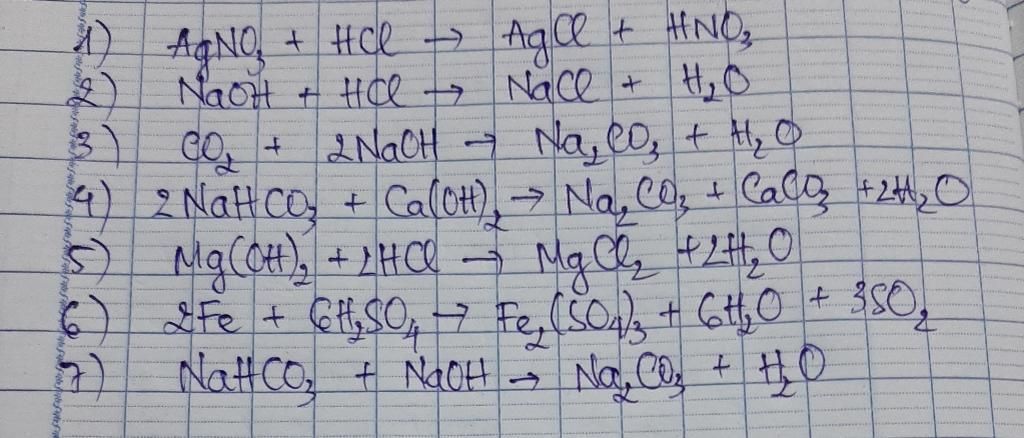 1) AgNO₃ + HCl → AgCl + HNO₃
2) NaOH + HCl → NaCl + H₂O
3) CO₂ + 2NaOH → Na₂CO₃ + H₂O
4) 2NaHCO₃ + Ca(OH)₂ → Na₂CO₃ + CaCO₃ + 2H₂O
5) Mg(OH)₂ + 2HCl → MgCl₂ + 2H₂O
6) 2Fe + 6H₂SO₄ → Fe₂(SO₄)₃ + 6H₂O + 3SO₂
7) NaHCO₃ + NaOH → Na₂CO₃ + H₂O